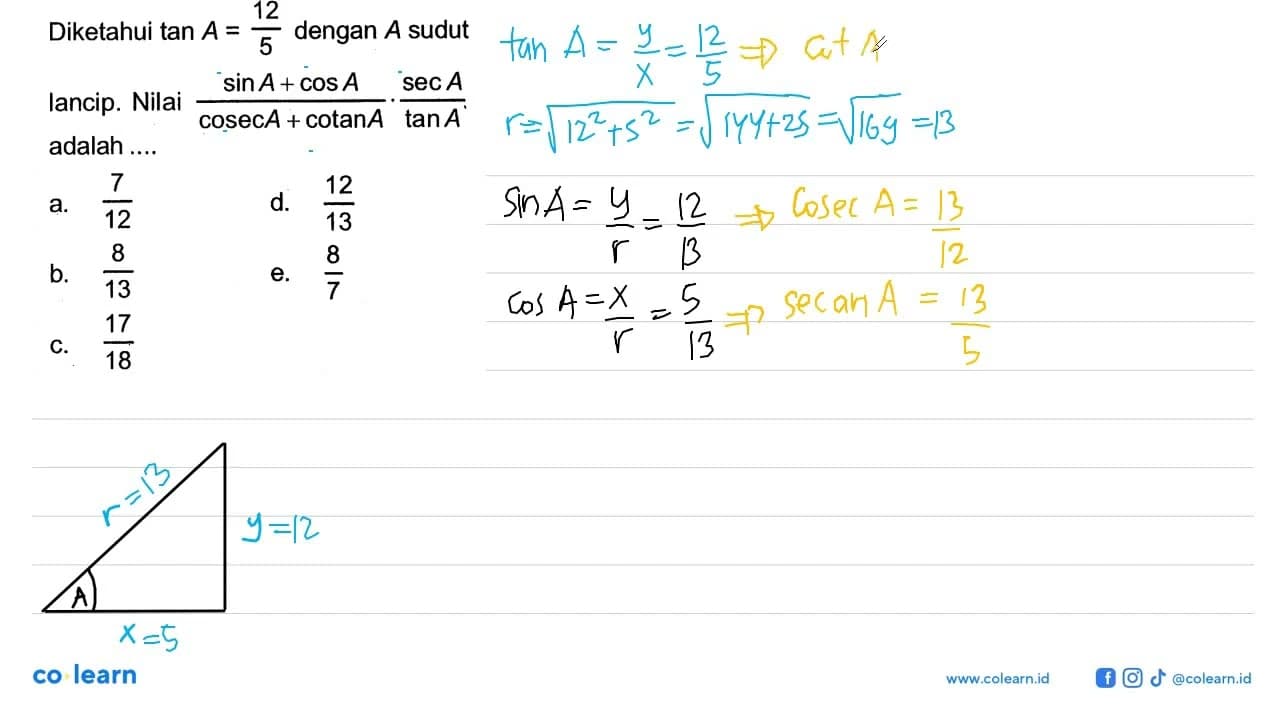 Diketahui tan A = 12/5 dengan A sudut
lancip. Nilai (sin A + cos A)/(cosecA + cotanA) · sec A/tan A
adalah ....
a. 7/12
d. 12/13
b. 8/13
e. 8/7
c. 17/18
tan A = y/x = 12/5 ⇒ Cot A
r = √(12² + 5²) = √(144 + 25) = √169 = 13
Sin A = y/r = 12/13 ⇒ Cosec A = 13/12
cos A = x/r = 5/13 ⇒ secan A = 13/5
r = 13
y = 12
A
x = 5
co learn
www.colearn.id
@colearn.id